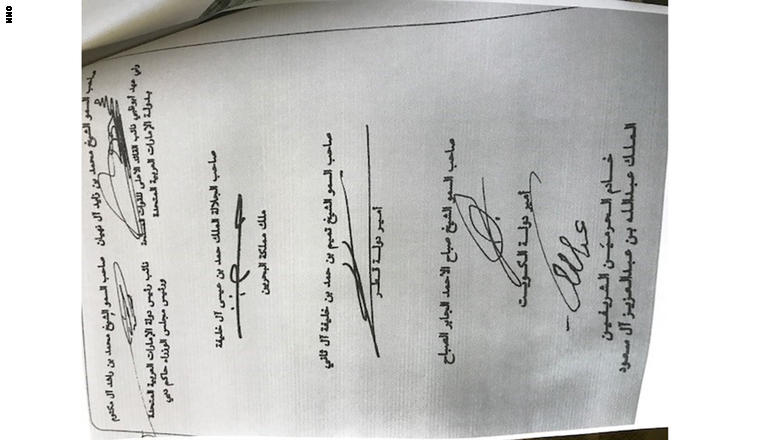 CNN
صاحب السمو الشيخ محمد بن زايد آل نهيان
ولي عهد أبوظبي نائب القائد الاعلى للقوات المسلحة
بدولة الإمارات العربية المتحدة
صاحب السمو الشيخ محمد بن راشد آل مكتوم
نائب رئيس دولة الإمارات العربية المتحدة
ورئيس مجلس الوزراء حاكم دبي
صاحب الجلالة الملك حمد بن عيسى آل خليفة
ملك مملكة البحرين
صاحب السمو الشيخ تميم بن حمد بن خليفة آل ثاني
أمير دولة قطر
صاحب السمو الشيخ صباح الاحمد الجابر الصباح
أمير دولة الكويت
خادم الحرمين الشريفين
الملك عبدالله بن عبدالعزيز آل سعود